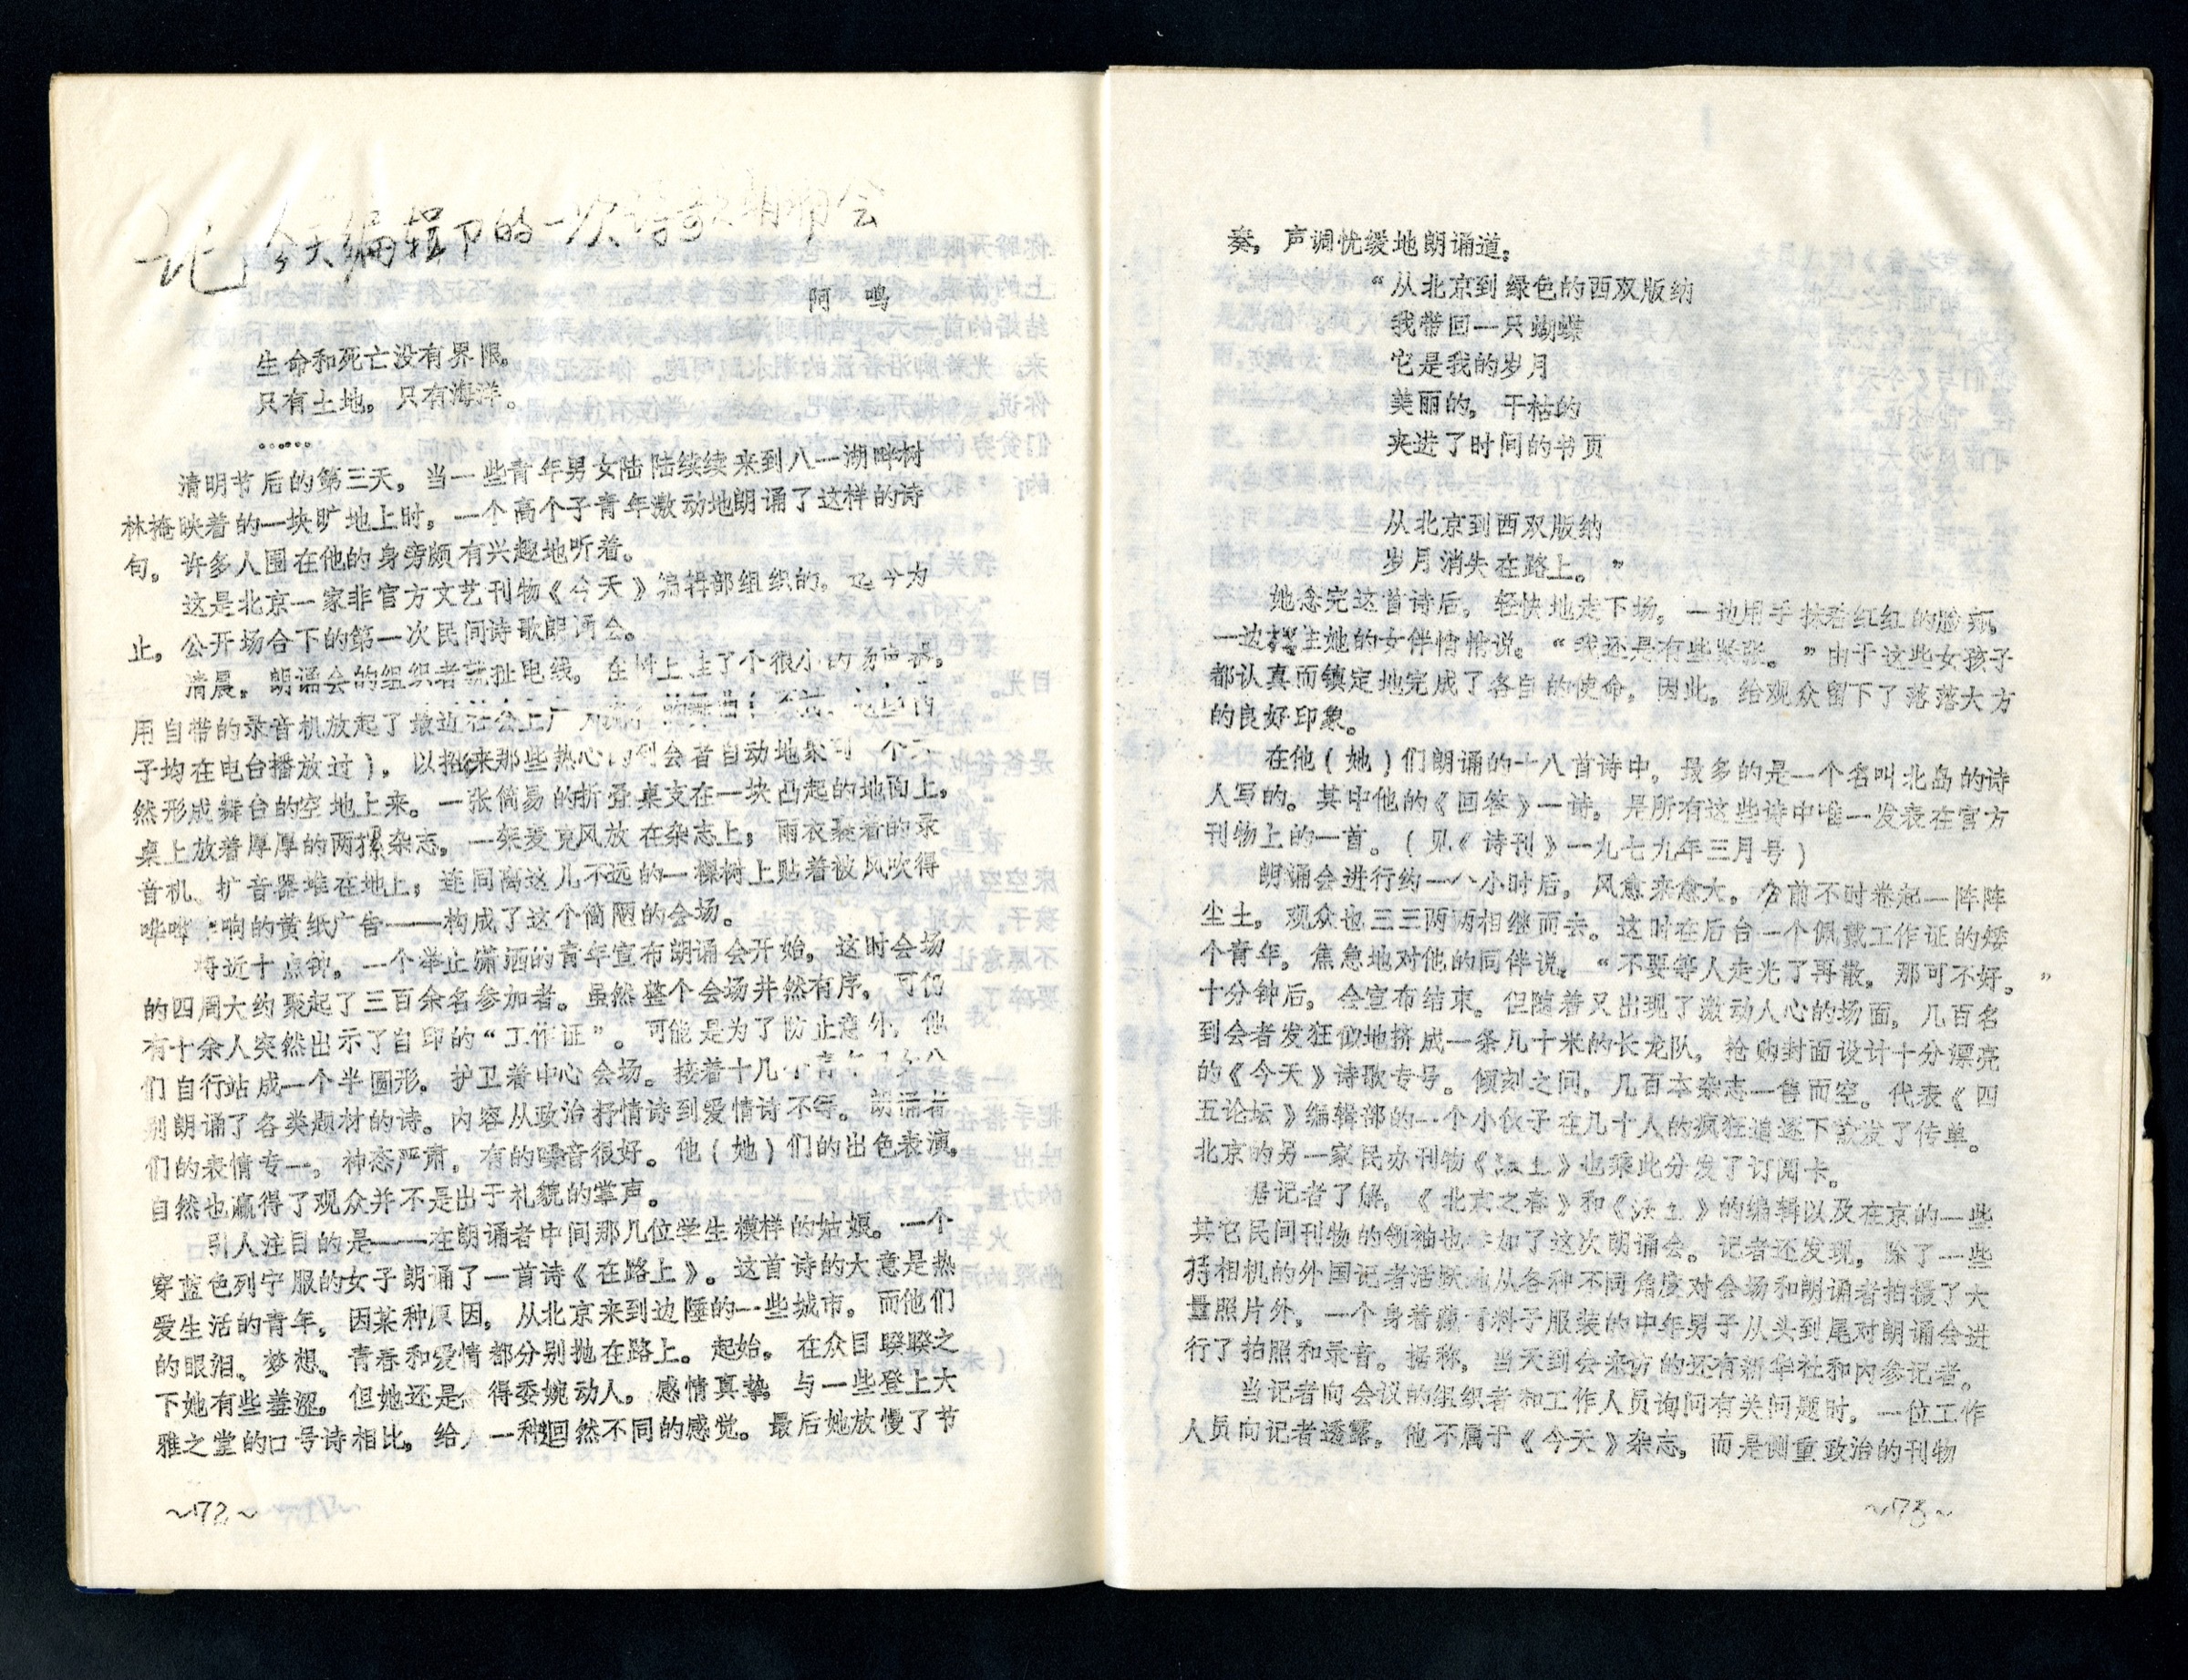 记“今天”编辑部的一次诗歌朗诵会
阿 鸣
生命和死亡没有界限。
只有土地。只有海洋。
……
清明节后的第三天，当一些青年男女陆陆续续来到八一湖畔树
林掩映着的一块旷地上时，一个高个子青年激动地朗诵了这样的诗
句，许多人围在他的身旁颇有兴趣地听着。
这是北京一家非官方文艺刊物《今天》编辑部组织的，迄今为
止，公开场合下的第一次民间诗歌朗诵会。
清晨，朗诵会的组织者就扯电线，在树上挂了个很小的扬声器。
用自带的录音机放起了最近社会上广
子均在电台播放过），以招来那些热心的到会者自动地聚到一个天
然形成舞台的空地上来。一张简易的折叠桌支在一块凸起的地面上，
桌上放着厚厚的两摞杂志，一架麦克风放在杂志上；雨衣裹着的录
音机、扩音器堆在地上；连同离这儿不远的一棵树上贴着被风吹得
哗哗作响的黄纸广告——构成了这个简陋的会场。
将近十点钟，一个举止潇洒的青年宣布朗诵会开始，这时会场
的四周大约聚起了三百余名参加者。虽然整个会场井然有序，可仍
有十余人突然出示了自印的“工作证”。可能是为了防止意外，他
们自行站成一个半圆形，护卫着中心会场。接着十几个青年
别朗诵了各类题材的诗。内容从政治抒情诗到爱情诗不等。朗诵者
们的表情专一，神态严肃，有的嗓音很好。他（她）们的出色表演，
自然也赢得了观众并不是出于礼貌的掌声。
引人注目的是——在朗诵者中间那几位学生模样的姑娘。一个
穿蓝色列宁服的女子朗诵了一首诗《在路上》。这首诗的大意是热
爱生活的青年，因某种原因，从北京来到边陲的一些城市。而他们
的眼泪、梦想、青春和爱情都分别抛在路上。起始，在众目睽睽之
下她有些羞涩，但她还是 得委婉动人，感情真挚，与一些登上大
雅之堂的口号诗相比，给人一种迥然不同的感觉。最后她放慢了节
～72～
奏，声调忧缓地朗诵道：
“从北京到绿色的西双版纳
我带回一只蝴蝶
它是我的岁月
美丽的，干枯的
夹进了时间的书页
从北京到西双版纳
岁月消失在路上。”
她念完这首诗后，轻快地走下场，一边用手抹着红红的脸颊，
一边 住她的女伴悄悄说。“我还是有些紧张。”由于这些女孩子
都认真而镇定地完成了各自的使命，因此，给观众留下了落落大方
的良好印象。
在他（她）们朗诵的十八首诗中，最多的是一个名叫北岛的诗
人写的。其中他的《回答》一诗，是所有这些诗中唯一发表在官方
刊物上的一首。（见《诗刊》一九七九年三月号）
朗诵会进行约一个小时后，风愈来愈大，台前不时卷起一阵阵
尘土，观众也三三两两相继而去。这时在后台一个佩戴工作证的矮
个青年，焦急地对他的同伴说。“不要等人走光了再散，那可不好。”
十分钟后，会宣布结束。但随着又出现了激动人心的场面，几百名
到会者发狂似地挤成一条几十米的长龙队，抢购封面设计十分漂亮
的《今天》诗歌专号。倾刻之间，几百本杂志一售而空。代表《四
五论坛》编辑部的一个小伙子在几十人的疯狂追逐下散发了传单。
北京的另一家民办刊物《沃土》也乘此分发了订阅卡。
据记者了解，《北京之春》和《沃土》的编辑以及在京的一些
其它民间刊物的领袖也参加了这次朗诵会。记者还发现，除了一些
持相机的外国记者活跃地从各种不同角度对会场和朗诵者拍摄了大
量照片外，一个身着藏青料子服装的中年男子从头到尾对朗诵会进
行了拍照和录音。据称，当天到会来访的还有新华社和内参记者。
当记者向会议的组织者和工作人员询问有关问题时，一位工作
人员向记者透露，他不属于《今天》杂志，而是侧重政治的刊物
～73～